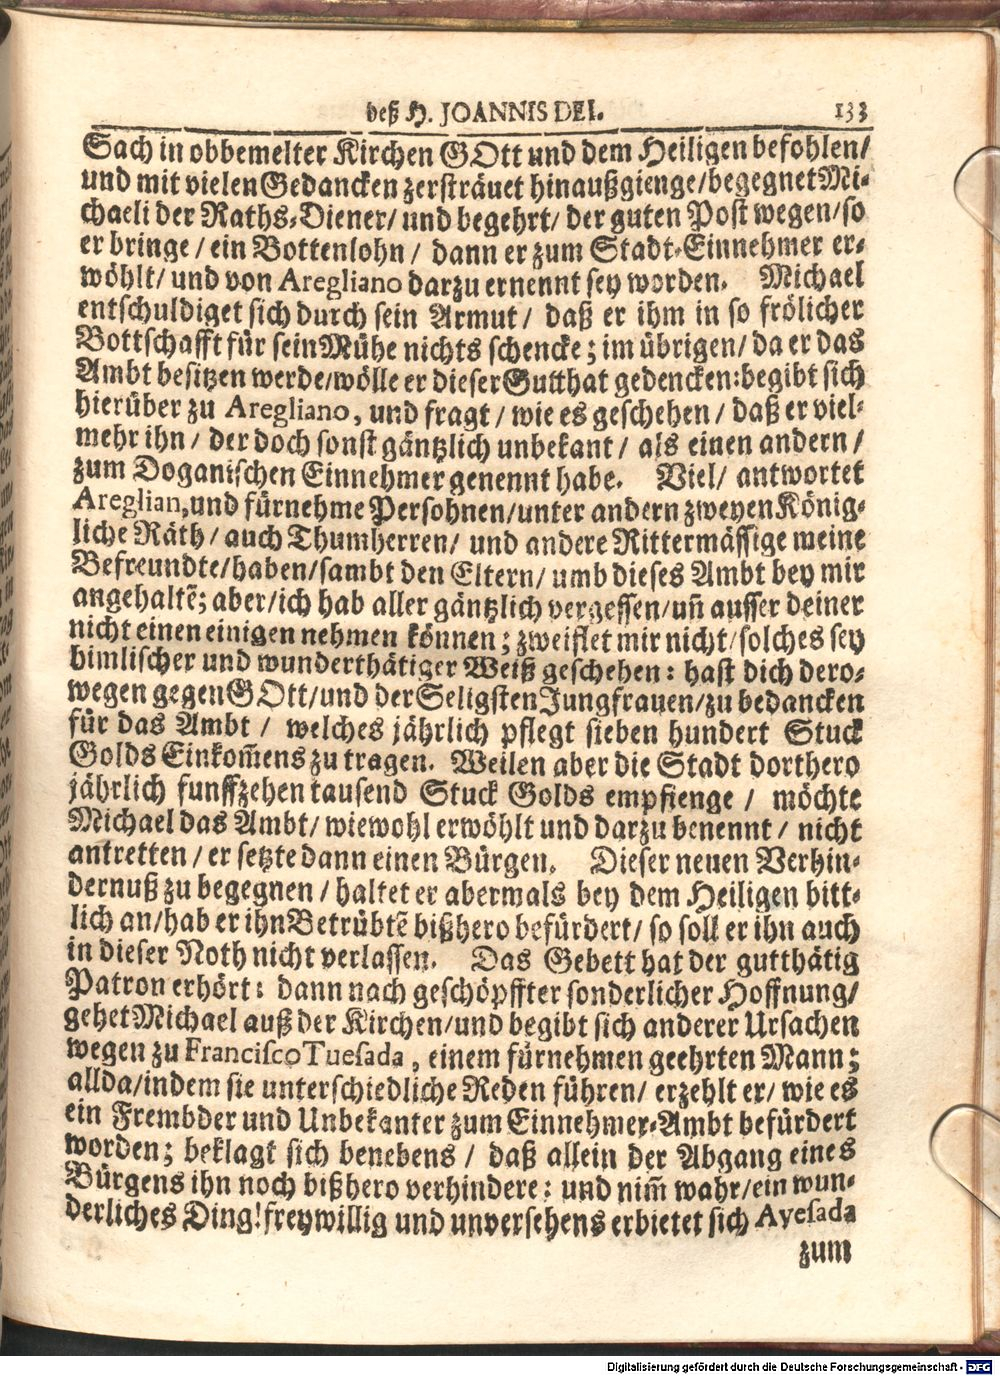 deß H. JOANNIS DEI. 133
Sach in obbemelter Kirchen GOtt und dem Heiligen befohlen/
und mit vielen Gedancken zersträuet hinaußgienge/begegnet Mi-
chaeli der Raths-Diener/ und begehrt/ der guten Post wegen/so
er bringe / ein Bottenlohn / dann er zum Stadt-Einnehmer er-
wöhlt/ und von Aregliano darzu ernennt sey worden. Michael
entschuldiget sich durch sein Armut / daß er ihm in so frölicher
Bottschafft für sein Mühe nichts schencke; im übrigen/ da er das
Ambt besitzen werde/wölle er dieser Gutthat gedencken:begibt sich
hierüber zu Aregliano, und fragt / wie es geschehen / daß er viel-
mehr ihn / der doch sonst gäntzlich unbekant / als einen andern /
zum Doganischen Einnehmer genennt habe. Viel/ antwortet
Areglian,und fürnehme Persohnen/unter andern zweyen König-
liche Räth / auch Thumherren/ und andere Rittermässige meine
Befreundte/haben/sambt den Eltern/ umb dieses Ambt bey mir
angehaltē; aber/ich hab aller gäntzlich vergessen/uñ ausser deiner
nicht einen einigen nehmen können; zweiflet mir nicht/solches sey
himlischer und wunderthätiger Weiß geschehen: hast dich dero-
wegen gegen GOtt/und der Seligsten Jungfrauen/zu bedancken
für das Ambt / welches jährlich pflegt sieben hundert Stuck
Golds Einkom̄ens zu tragen. Weilen aber die Stadt dorthero
jährlich funffzehen tausend Stuck Golds empfienge / möchte
Michael das Ambt/ wiewohl erwöhlt und darzu benennt / nicht
antretten / er setzte dann einen Bürgen. Dieser neuen Verhin-
dernuß zu begegnen / haltet er abermals bey dem Heiligen bitt-
lich an/hab er ihn Betrübtē bißhero befürdert/ so soll er ihn auch
in dieser Noth nicht verlassen. Das Gebett hat der gutthätig
Patron erhört: dann nach geschöpffter sonderlicher Hoffnung/
gehet Michael auß der Kirchen/und begibt sich anderer Ursachen
wegen zu Francisco Tuesada, einem fürnehmen geehrten Mann;
allda/indem sie unterschiedliche Reden führen/ erzehlt er/ wie es
ein Frembder und Unbekanter zum Einnehmer-Ambt befürdert
worden; beklagt sich benebens / daß allein der Abgang eines
Bürgens ihn noch bißhero verhindere: und nim̄ wahr/ein wun-
derliches Ding!freywillig und unversehens erbietet sich Ayesada
zum
Digitalisierung gefördert durch die Deutsche Forschungsgemeinschaft - DFG